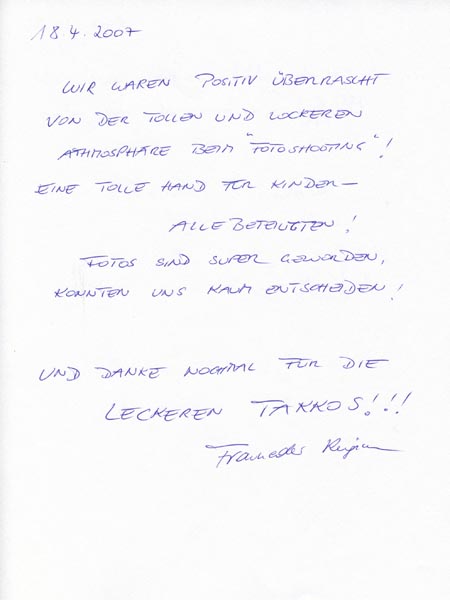 18.4.2007
WIR WAREN POSITIV ÜBERRASCHT
VON DER TOLLEN UND LOCKEREN
ATHMOSPHÄRE BEIM "FOTOSHOOTING"!
EINE TOLLE HAND FÜR KINDER –
ALLE BETEILIGTEN!
FOTOS SIND SUPER GEWORDEN,
KONNTEN UNS KAUM ENTSCHEIDEN!
UND DANKE NOCHMAL FÜR DIE
LECKEREN TAKKOS!!!